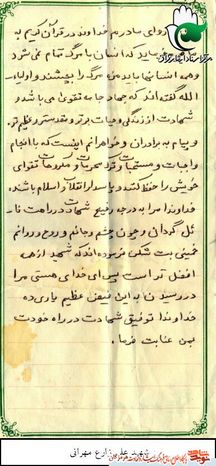 روای مادرم خداوند در قرآن کریم به
ما میفرماید که انسان با مرگ تمام نمی شود
و همه انسانها باید مزه مرگ را بچشند و اولیاء
الله گفته‌اند که جهاد جامه تقوی می باشد و
شهادت از زندگی و حیات برتر و عظیم تر.
و پیام به برادران و خواهرانم اینست که با انجام
واجبات و مستحبات و ترک محرمات و مکروهات تقوای
خویش را حفظ کنند و پاسدار انقلاب و اسلام باشند
خداوندا مرا به درجه رفیع شهادت در راهت نا
ئل گردان و چون چشم و جانم و روح و روانم
خمینی بت شکن فرموده‌اند که شهید از همه
افضل تر است پس ای خدای هستی مرا
در رسیدن به این فیض عظیم یاری ده
خداوندا توفیق شهادت در راه خودت
بمن عنایت فرما.
شهید علی زارع مهرانی